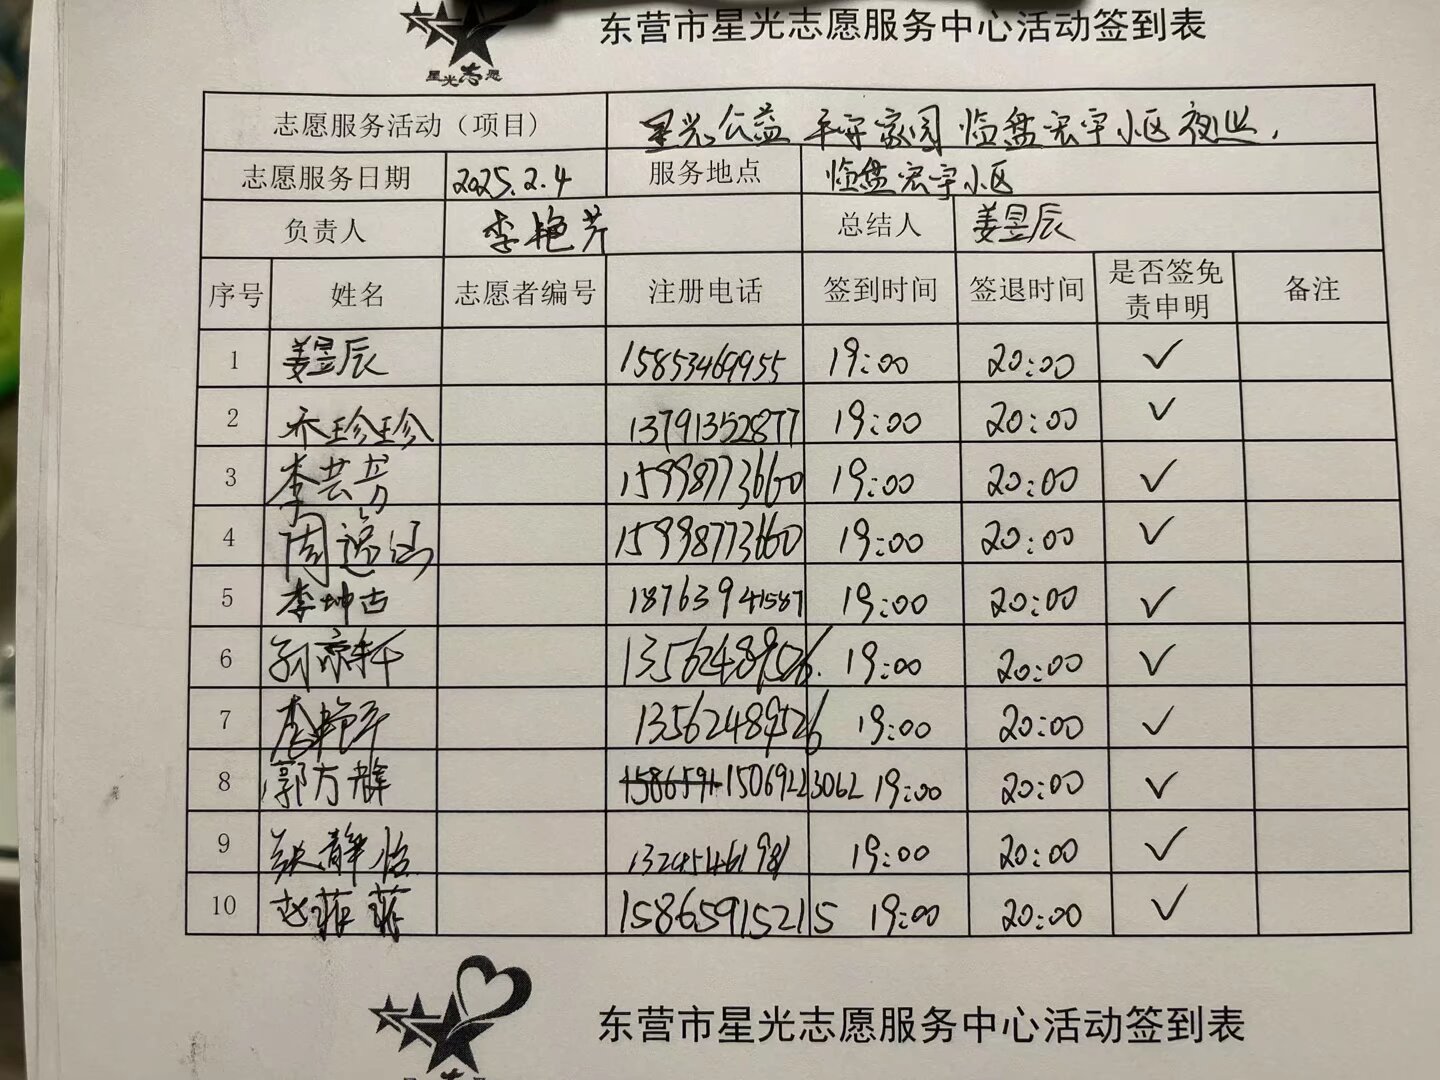 东营市星光志愿服务中心活动签到表
星光志愿
志愿服务活动（项目） 星光公益 平安家园 临盘宏宇小区夜巡.
志愿服务日期 2025.2.4 服务地点 临盘宏宇小区
负责人 李艳芹 总结人 姜昱辰
序号 姓名 志愿者编号 注册电话 签到时间 签退时间 是否签免责申明 备注
1 姜昱辰 15853469955 19:00 20:00 ✓
2 乔珍珍 13791352877 19:00 20:00 ✓
3 李芸芳 15998773660 19:00 20:00 ✓
4 周 15998773660 19:00 20:00 ✓
5 李坤古 18763941587 19:00 20:00 ✓
6 孙京轩 13562489526. 19:00 20:00 ✓
7 李艳芹 13562489526 19:00 20:00 ✓
8 郭方辉 15069223062 19:00 20:00 ✓
9 静怡 19:00 20:00 ✓
10 赵菲菲 15865915215 19:00 20:00 ✓
东营市星光志愿服务中心活动签到表